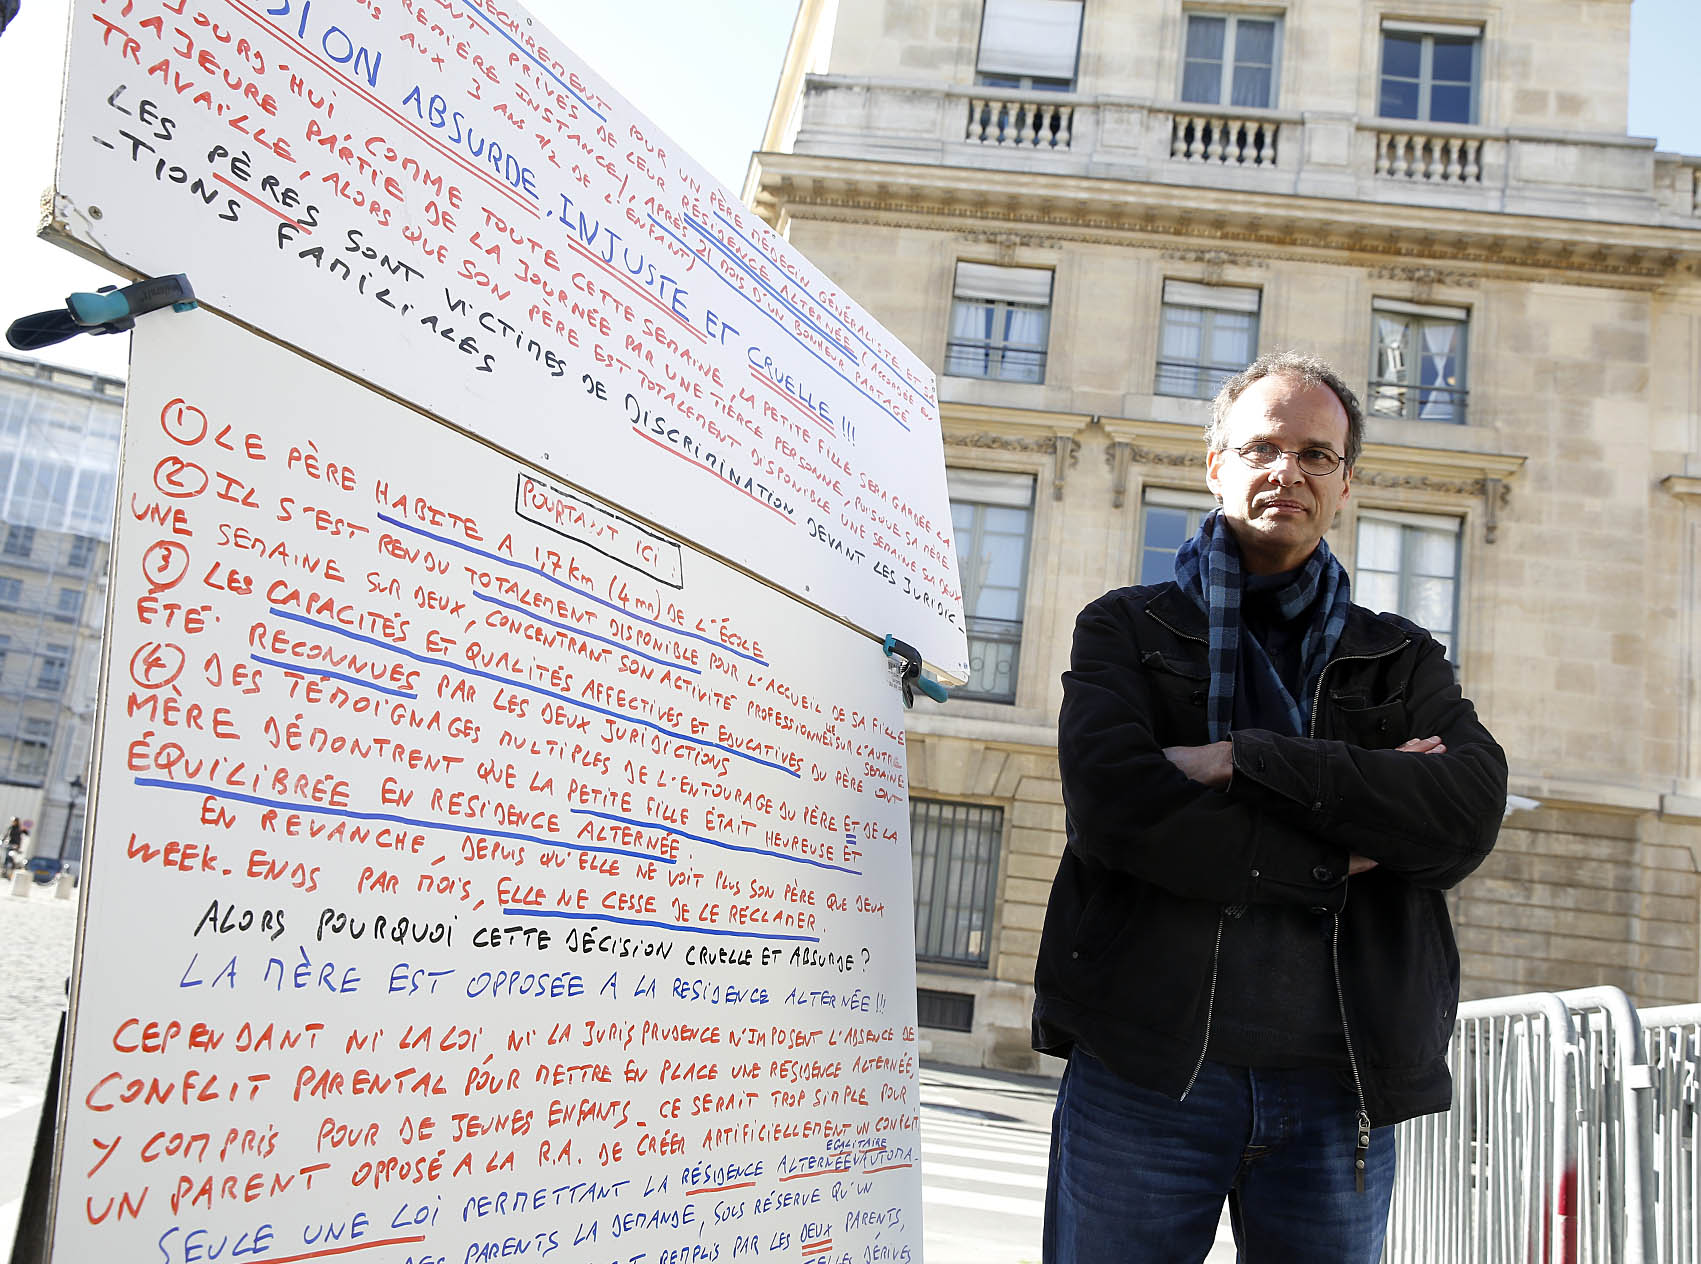 DÉCHIREMENT POUR UN PÈRE MÉDECIN GÉNÉRALISTE ET SA
PRIVÉS DE LEUR RÉSIDENCE ALTERNÉE (ACCORDÉE EN
PREMIÈRE INSTANCE), APRÈS 21 MOIS D'UN BONHEUR PARTAGÉ
AUX 3 ANS 1/2 DE L'ENFANT)
ABSURDE, INJUSTE ET CRUELLE !!!
JOURD'HUI, COMME TOUTE CETTE SEMAINE, LA PETITE FILLE SERA GARDÉE LA
MAJEURE PARTIE DE LA JOURNÉE PAR UNE TIERCE PERSONNE, PUISQUE SA MÈRE
TRAVAILLE, ALORS QUE SON PÈRE EST TOTALEMENT DISPONIBLE UNE SEMAINE SUR DEUX
LES PÈRES SONT VICTIMES DE DISCRIMINATION DEVANT LES JURIDIC-
-TIONS FAMILIALES
POURTANT ICI
① LE PÈRE HABITE A 1,7 km (4 mn) DE L'ÉCOLE
② IL S'EST RENDU TOTALEMENT DISPONIBLE POUR L'ACCUEIL DE SA FILLE
UNE SEMAINE SUR DEUX, CONCENTRANT SON ACTIVITÉ PROFESSIONNELLE SUR L'AUTRE SEMAINE
③ LES CAPACITÉS ET QUALITÉS AFFECTIVES ET EDUCATIVES DU PÈRE ONT
ÉTÉ RECONNUES PAR LES DEUX JURIDICTIONS
④ DES TÉMOIGNAGES MULTIPLES DE L'ENTOURAGE DU PÈRE ET DE LA
MÈRE DÉMONTRENT QUE LA PETITE FILLE ÉTAIT HEUREUSE ET
ÉQUILIBRÉE EN RÉSIDENCE ALTERNÉE.
EN REVANCHE, DEPUIS QU'ELLE NE VOIT PLUS SON PÈRE QUE DEUX
WEEK-ENDS PAR MOIS, ELLE NE CESSE DE LE RÉCLAMER.
ALORS POURQUOI CETTE DÉCISION CRUELLE ET ABSURDE ?
LA MÈRE EST OPPOSÉE A LA RESIDENCE ALTERNÉE !!!
CEPENDANT NI LA LOI, NI LA JURISPRUDENCE N'IMPOSENT L'ABSENCE DE
CONFLIT PARENTAL POUR METTRE EN PLACE UNE RÉSIDENCE ALTERNÉE,
Y COMPRIS POUR DE JEUNES ENFANTS. CE SERAIT TROP SIMPLE POUR
UN PARENT OPPOSÉ A LA R.A. DE CRÉER ARTIFICIELLEMENT UN CONFLIT
SEULE UNE LOI PERMETTANT LA RÉSIDENCE ALTERNÉE EGALITAIRE AUTOMA-
DES PARENTS LA DEMANDE, SOUS RÉSERVE QU'UN
REMPLIS PAR LES DEUX PARENTS,
TELLES DÉRIVES